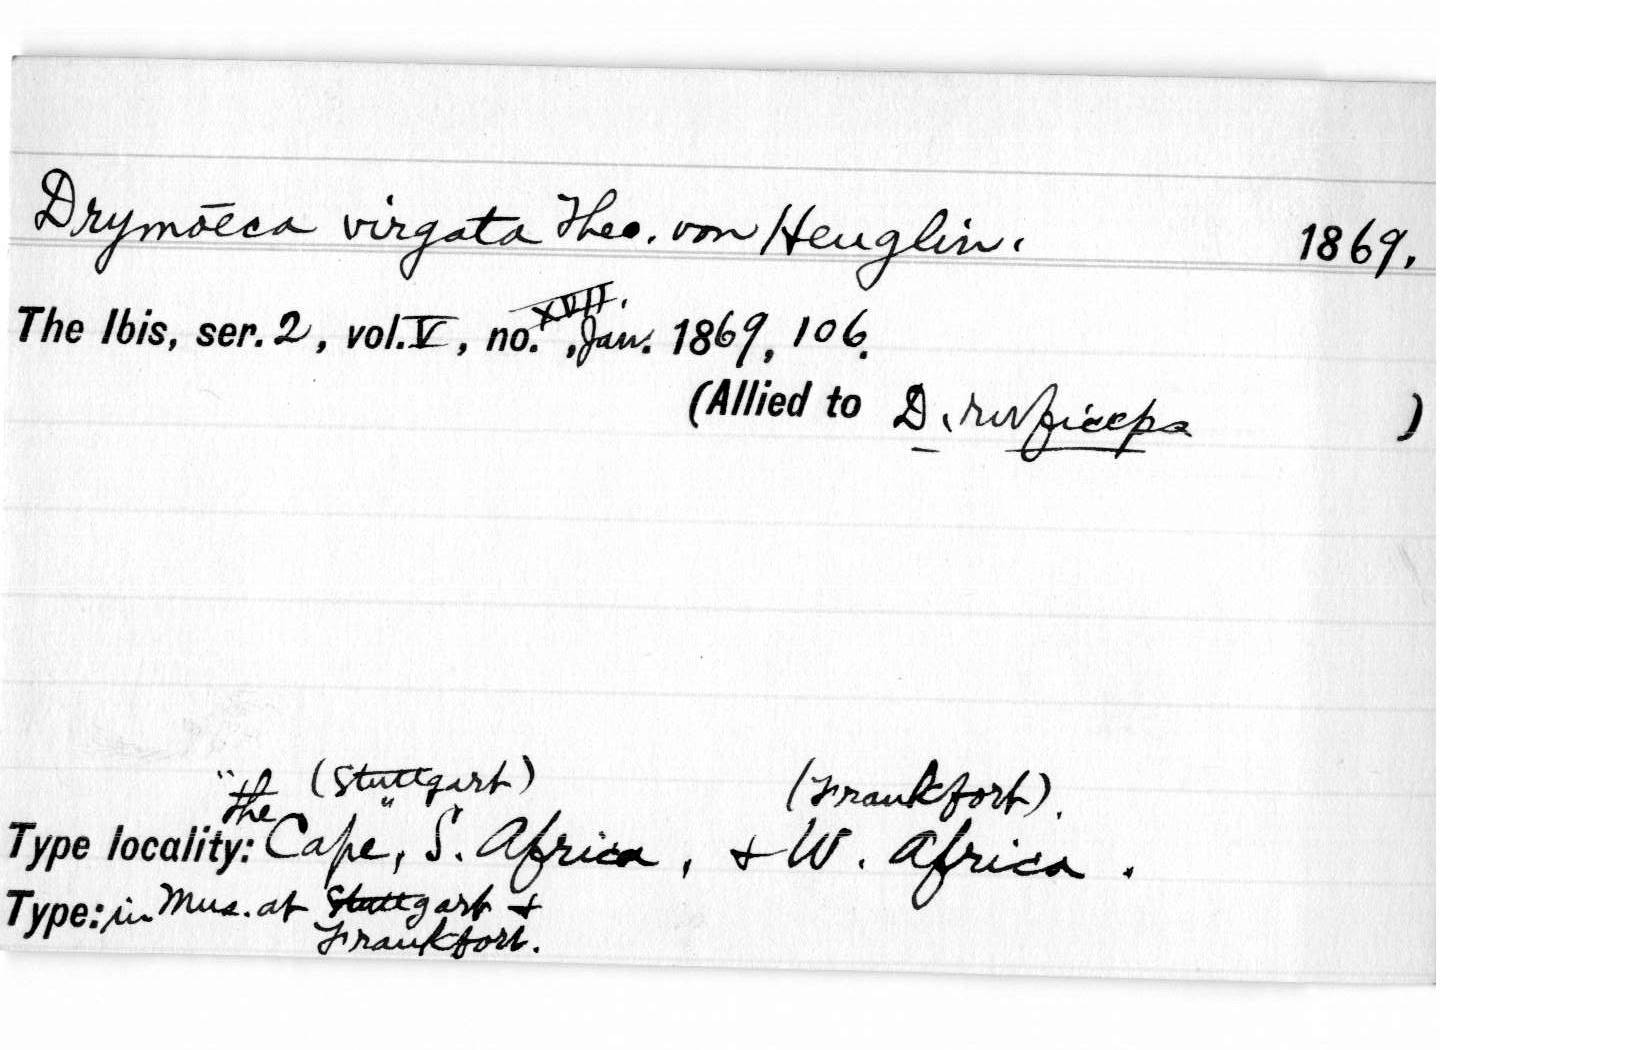 Drymōeca virgata Theo. von Heuglin. 1869.
The Ibis, ser. 2, vol. V, no. XVII., Jan. 1869, 106.
(Allied to D. ruficeps )
(Stuttgart) (Frankfort).
Type locality: "the Cape", S. Africa, & W. Africa.
Type: in Mus. at Stuttgart &
Frankfort.